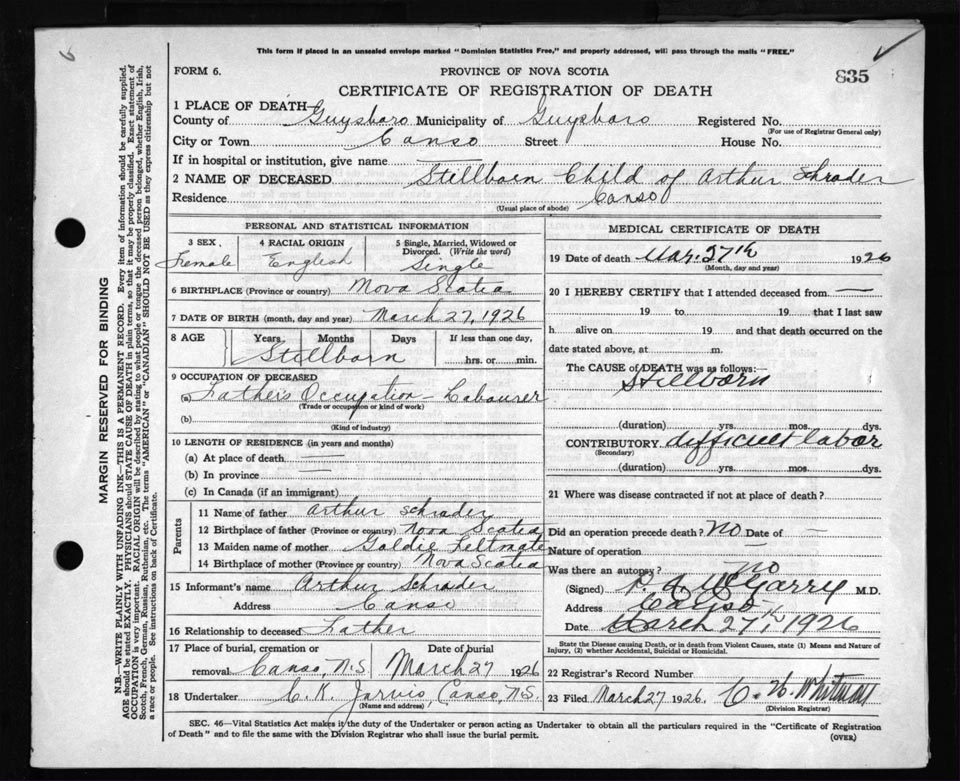 This form if placed in an unsealed envelope marked "Dominion Statistics Free," and properly addressed, will pass through the mails "FREE."
FORM 6.
PROVINCE OF NOVA SCOTIA
835
CERTIFICATE OF REGISTRATION OF DEATH
1 PLACE OF DEATH—
County of Guysboro Municipality of Guysboro Registered No.
(For use of Registrar General only)
City or Town Canso Street House No.
If in hospital or institution, give name —
2 NAME OF DECEASED Stillborn Child of Arthur Schrader
Residence Canso
(Usual place of abode)
PERSONAL AND STATISTICAL INFORMATION
3 SEX. Female
4 RACIAL ORIGIN English
5 Single, Married, Widowed or Divorced. (Write the word) Single
6 BIRTHPLACE (Province or country) Nova Scotia
7 DATE OF BIRTH (month, day and year) March 27, 1926
8 AGE Years Months Days If less than one day,
Stillborn hrs. or min.
9 OCCUPATION OF DECEASED
(a) Father's Occupation - Labourer
(Trade or occupation or kind of work)
(b)
(Kind of industry)
10 LENGTH OF RESIDENCE (in years and months)
(a) At place of death —
(b) In province —
(c) In Canada (if an immigrant)
Parents
11 Name of father Arthur Schrader
12 Birthplace of father (Province or country) Nova Scotia
13 Maiden name of mother Goldie
14 Birthplace of mother (Province or country) Nova Scotia
15 Informant's name Arthur Schrader
Address Canso
16 Relationship to deceased Father
17 Place of burial, cremation or removal Canso, N.S. Date of burial March 27 1926
18 Undertaker C. K. Jarvis, Canso, N.S.
(Name and address)
MEDICAL CERTIFICATE OF DEATH
19 Date of death Mar. 27th 1926
(Month, day and year)
20 I HEREBY CERTIFY that I attended deceased from —
19 to 19 that I last saw
h alive on 19 and that death occurred on
date stated above, at m.
The CAUSE of DEATH was as follows:—
Stillborn
(duration) yrs. mos. dys.
CONTRIBUTORY difficult labor
(Secondary)
(duration) yrs. mos. dys.
21 Where was disease contracted if not at place of death? —
Did an operation precede death? No Date of —
Nature of operation —
Was there an autopsy? no
(Signed) P. A. McGarry M.D.
Address Canso
Date March 27th 1926
State the Disease causing Death, or in death from Violent Causes, state (1) Means and Nature of Injury, (2) whether Accidental, Suicidal or Homicidal.
22 Registrar's Record Number
23 Filed March 27 1926. C. H. Whitman
(Division Registrar)
SEC. 46—Vital Statistics Act makes it the duty of the Undertaker or person acting as Undertaker to obtain all the particulars required in the "Certificate of Registration
of Death" and to file the same with the Division Registrar who shall issue the burial permit.
(OVER)
MARGIN RESERVED FOR BINDING
N.B.—WRITE PLAINLY WITH UNFADING INK—THIS IS A PERMANENT RECORD. Every item of information should be carefully supplied.
AGE should be stated EXACTLY. PHYSICIANS should STATE CAUSE OF DEATH in plain terms, so that it may be properly classified. Exact statement of
OCCUPATION is very important. RACIAL ORIGIN will be described by stating to what people or tongue the deceased person belonged, whether English, Irish,
Scotch, French, German, Russian, Ruthenian, etc. The terms "AMERICAN" or "CANADIAN" SHOULD NOT BE USED as they express citizenship but not
a race or people. See instructions on back of Certificate.